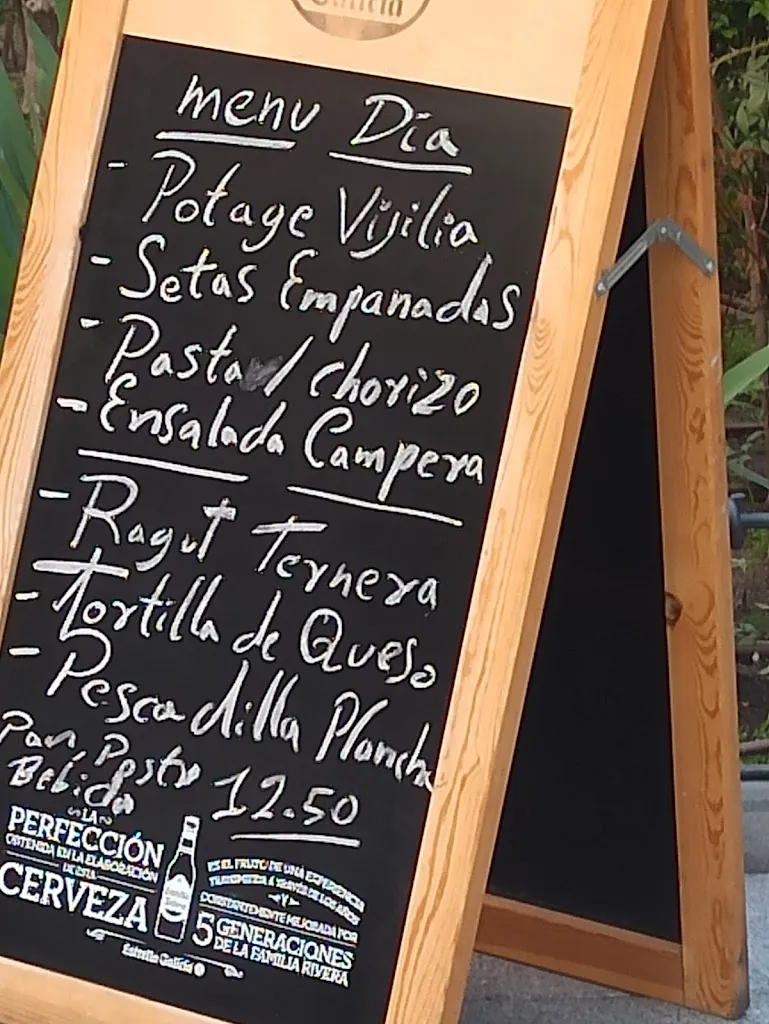 Galicia
menu Día
- Potage Vijilia
- Setas Empanadas
- Pasta / chorizo
- Ensalada Campera
- Ragut Ternera
- Tortilla de Queso
- Pescadilla Plancha
Pan, Postre
Bebida 12.50
LA
PERFECCIÓN
OBTENIDA EN LA ELABORACIÓN
DE ESTA
CERVEZA
ES EL FRUTO DE UNA EXPERIENCIA
TRANSMITIDA A TRAVÉS DE LOS AÑOS
Y
CONSTANTEMENTE MEJORADA POR
5 GENERACIONES
DE LA FAMILIA RIVERA
Estrella Galicia